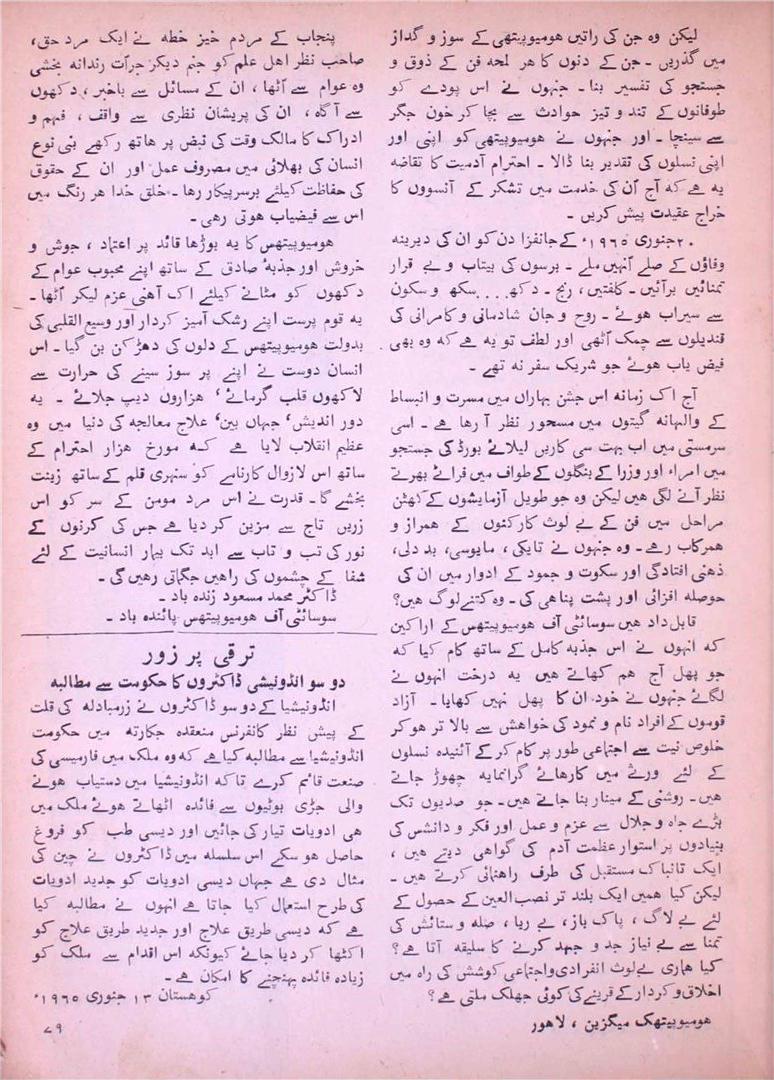 لیکن وہ جن کی راتیں ھومیوپیتھی کے سوز و گداز
میں گذریں ۔ جن کے دنوں کا ھر لمحہ فن کے ذوق و
جستجو کی تفسیر بنا ۔ جنہوں نے اس پودے کو
طوفانوں کے تند و تیز حوادث سے بچا کر خون جگر
سے سینچا ۔ اور جنہوں نے ھومیوپیتھی کو اپنی اور
اپنی نسلوں کی تقدیر بنا ڈالا ۔ احترام آدمیت کا تقاضہ
یہ ھے کہ آج اُن کی خدمت میں تشکر کے آنسووں کا
خراج عقیدت پیش کریں ۔
۲۰ جنوری ۱۹۶۵ء کے جانفزا دن کو ان کی دیرینہ
وفاؤں کے صلے آنہیں ملے ۔ برسوں کی بیتاب و بے قرار
تمنائیں برآئیں ۔ کلفتیں ، رنج ۔ دکھ . . . . سکھ و سکون
سے سیراب ھوئے ۔ روح و جان شادمانی و کامرانی کی
قندیلوں سے چمک آٹھی اور لطف تو یہ ھے کہ وہ بھی
فیض یاب ھوئے جو شریک سفر نہ تھے ۔
آج اک زمانہ اس جشن بہاراں میں مسرت و انبساط
کے والہانہ گیتوں میں مسحور نظر آ رھا ھے ۔ اسی
سرمستی میں اب بہت سی کاریں لیلائے بورڈ کی جستجو
میں امراء اور وزرا کے بنگلوں کے طواف میں فراٹے بھرتے
نظر آنے لگی ھیں لیکن وہ جو طویل آزمایشوں کے کھٹن
مراحل میں فن کے بے لوث کارکنوں کے ھمراز و
ھمرکاب رھے ۔ وہ جنہوں نے تایکی ، مایوسی، بد دلی،
ذھنی افتادگی اور سکوت و جمود کے ادوار میں ان کی
حوصلہ افزائی اور پشت پناھی کی ۔ وہ کتنے لوگ ھیں؟
قابل داد ھیں سوسائٹی آف ھومیوپیتھس کے اراکین
کہ انہوں نے اس جذبہ کامل کے ساتھ کام کیا کہ
جو پھل آج ھم کھاتے ھیں یہ درخت انہوں نے
لگائے جنہوں نے خود ان کا پھل نہیں کھایا ۔ آزاد
قوموں کے افراد نام و نمود کی خواھش سے بالا تر ھو کر
خلوص نیت سے اجتماعی طور پر کام کر کے آئیندہ نسلوں
کے لئے ورثے میں کارھائے گرانمایہ چھوڑ جاتے
ھیں ۔ روشنی کے مینار بنا جاتے ھیں ۔ جو صدیوں تک
بڑے جاہ و جلال سے عزم و عمل اور فکر و دانش کی
بنیادوں پر استوار عظمت آدم کی گواھی دیتے ھیں ،
ایک تابناک مستقبل کی طرف راھنمائی کرتے ھیں ۔
لیکن کیا ھمیں ایک بلند تر نصب العین کے حصول کے
لئے بے لاگ ، پاک باز ، بے ریا ، صلہ و ستائش کی
تمنا سے بے نیاز جد و جہد کرنے کا سلیقہ آتا ھے ؟
کیا ھماری بے لوث انفرادی و اجتماعی کوشش کی راہ میں
اخلاق و کردار کے قرینے کی کوئی جھلک ملتی ھے ؟
ھومیوپیتھک میگزین ، لاھور
پنجاب کے مردم خیز خطہ نے ایک مرد حق،
صاحب نظر اھل علم کو جنم دیکر جرآت رندانہ بخشی
وہ عوام سے آٹھا ، ان کے مسائل سے باخبر ، دکھوں
سے آگاہ ، ان کی پریشان نظری سے واقف ، فہم و
ادراک کا مالک وقت کی نبض پر ھاتھ رکھے بنی نوع
انسان کی بھلائی میں مصروف عمل اور ان کے حقوق
کی حفاظت کیلئے برسرپیکار رھا ۔ خلق خدا ھر رنگ میں
اس سے فیضیاب ھوتی رھی ۔
ھومیوپیتھس کا یہ بوڑھا قائد پر اعتماد ، جوش و
خروش اور جذبۂ صادق کے ساتھ اپنے محبوب عوام کے
دکھوں کو مٹانے کیلئے اک آھنی عزم لیکر آٹھا ۔
یہ قوم پرست اپنے رشک آمیز کردار اور وسیع القلبی کی
بدولت ھومیوپیتھس کے دلوں کی دھڑکن بن گیا ۔ اس
انسان دوست نے اپنے پر سوز سینے کی حرارت سے
لاکھوں قلب گرمائے ، ھزاروں دیپ جلائے ۔ یہ
دور اندیش ، جہاں بین ، علاج معالجہ کی دنیا میں وہ
عظیم انقلاب لایا ھے کہ مورخ ھزار احترام کے
ساتھ اس لازوال کارنامے کو سنہری قلم کے ساتھ زینت
بخشے گا ۔ قدرت نے اس مرد مومن کے سر کو اس
زریں تاج سے مزین کر دیا ھے جس کی کرنوں کے
نور کی تب و تاب سے ابد تک بیمار انسانیت کے لئے
شفا کے چشموں کی راھیں جگمگاتی رھیں گی ۔
ڈاکٹر محمد مسعود زندہ باد ۔
سوسائٹی آف ھومیوپیتھس پائندہ باد ۔
ترقی پر زور
دو سو انڈونیشی ڈاکٹروں کا حکومت سے مطالبہ
انڈونیشیا کے دو سو ڈاکٹروں نے زرمبادلہ کی قلت
کے پیش نظر کانفرنس منعقدہ جکارتہ میں حکومت
انڈونیشیا سے مطالبہ کیا ھے کہ وہ ملک میں فارمیسی کی
صنعت قائم کرے تا کہ انڈونیشیا میں دستیاب ھونے
والی جڑی بوٹیوں سے فائدہ اٹھاتے ھوئے ملک میں
ھی ادویات تیار کی جائیں اور دیسی طب کو فروغ
حاصل ھو سکے اس سلسلہ میں ڈاکٹروں نے چین کی
مثال دی ھے جہاں دیسی ادویات کو جدید ادویات
کی طرح استعمال کیا جاتا ھے انہوں نے مطالبہ کیا
ھے کہ دیسی طریق علاج اور جدید طریق علاج کو
اکٹھا کر دیا جائے کیونکہ اس اقدام سے ملک کو
زیادہ فائدہ پہنچنے کا امکان ھے ۔
کوھستان ۱۳ جنوری ۱۹۶۵ء
۷۹